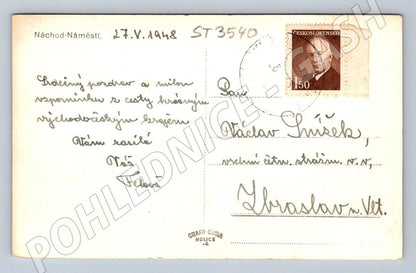 Náchod-Náměstí.
27.V.1948
ST3540
ČESKOSLOVENSKO
1.50
Srdečný pozdrav a milou
vzpomínku z cesty krásným
východočeským krajem
Vám zasílá
Váš
Pan
Václav Smíšek,
vrchní čětn. strážm. v. v.,
Zbraslav n. Vlt.
GRAFO ČUDA
HOLICE
POHLEDNICE